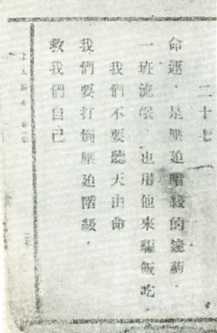 二十七
命運，是壓迫階級的護符，
一班流氓，也用他來騙飯吃，
我們不要聽天由命
我們要打倒壓迫階級，
救我們自己